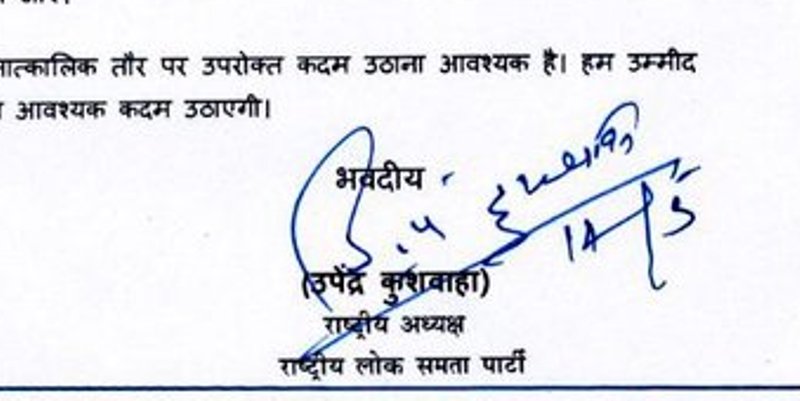 तात्कालिक तौर पर उपरोक्त कदम उठाना आवश्यक है। हम उम्मीद
आवश्यक कदम उठाएगी।
भवदीय
(उपेंद्र कुशवाहा)
राष्ट्रीय अध्यक्ष
राष्ट्रीय लोक समता पार्टी